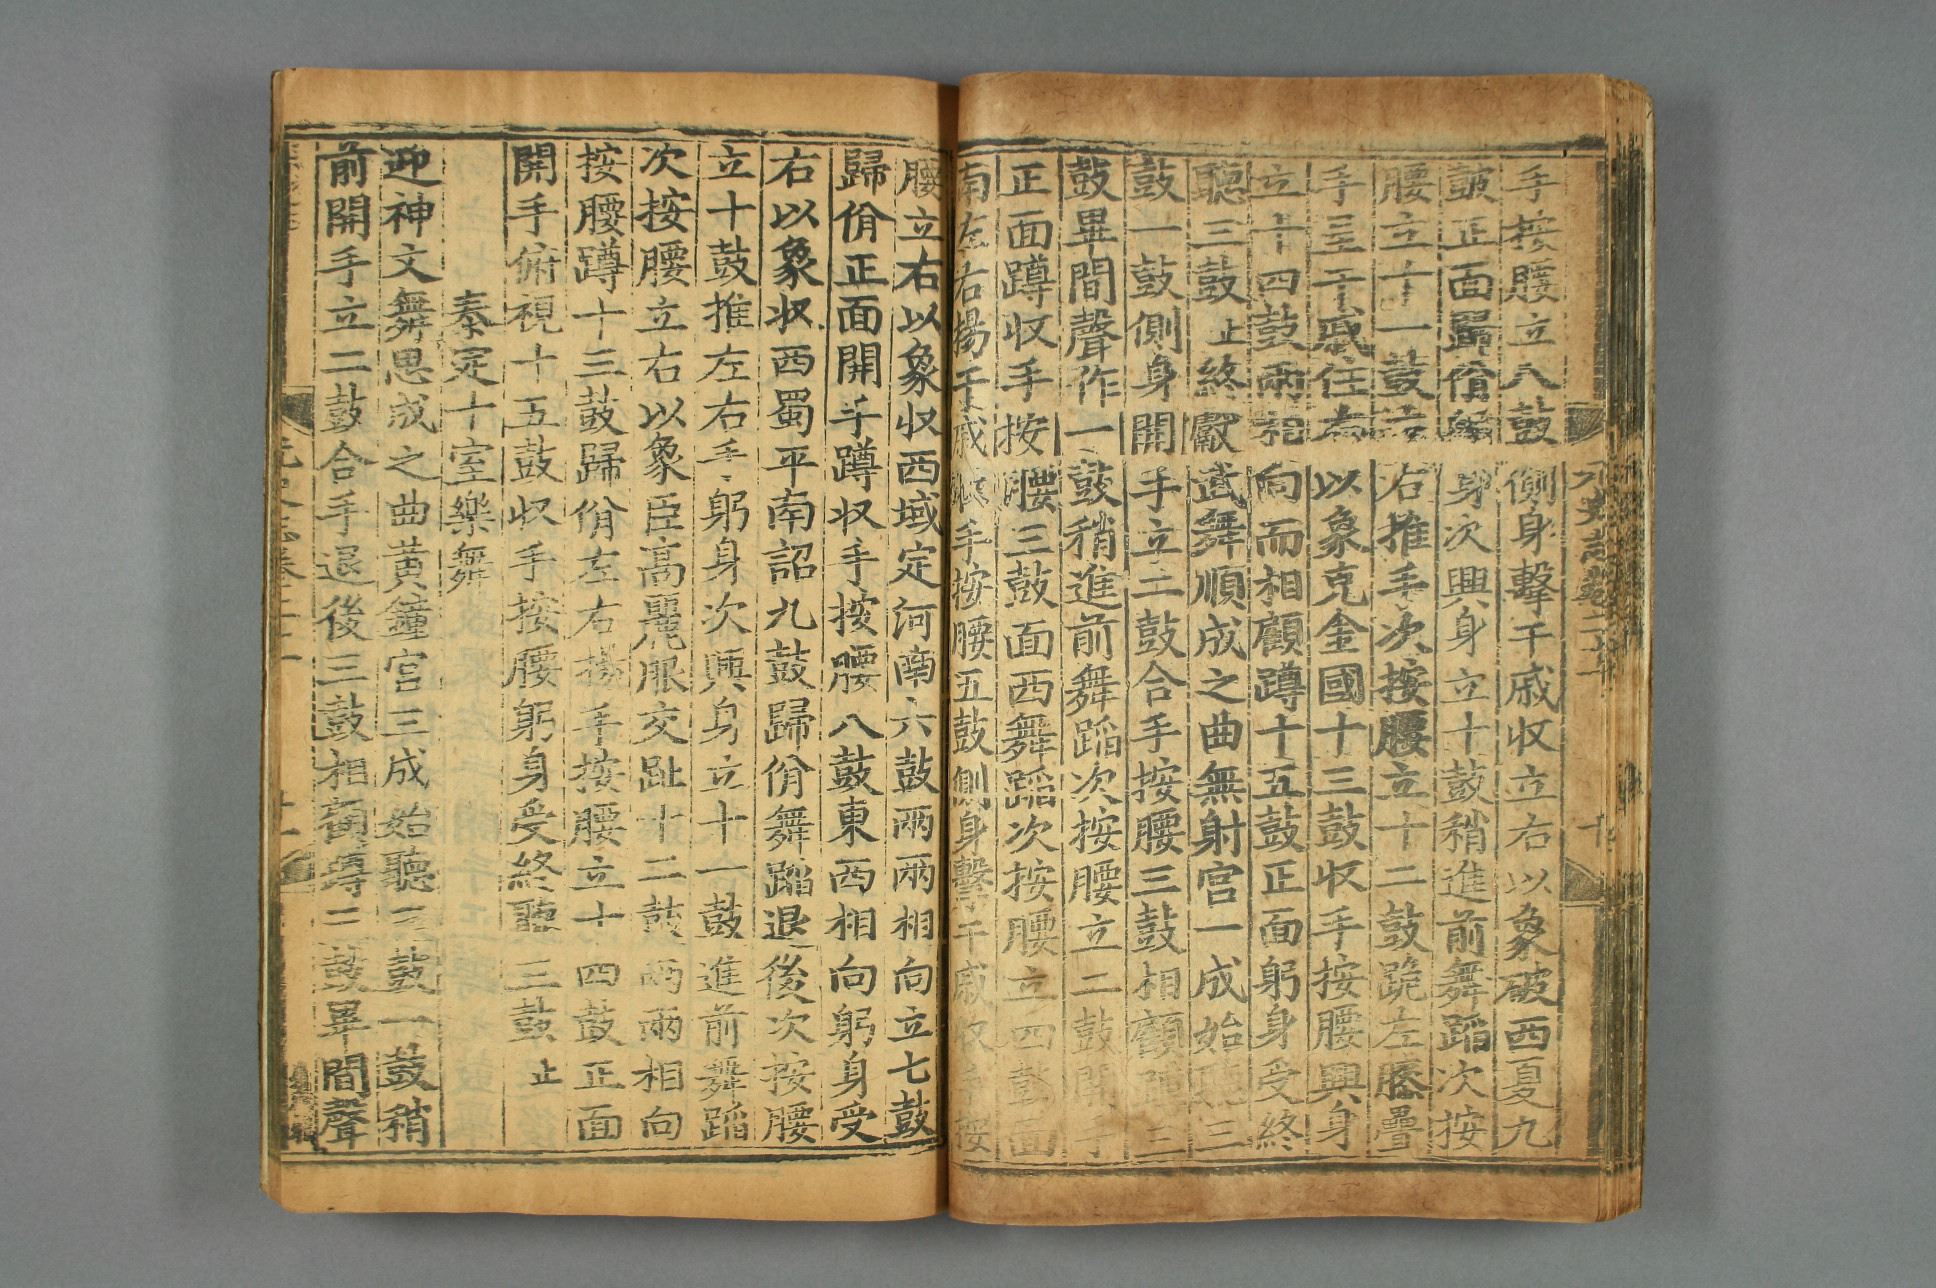 手按腰立八鼓側身擊干戚收立右以象破西夏九
鼓正面歸佾躬身次興身立十鼓稍進前舞蹈次按
腰立十一鼓左右推手次按腰立十二鼓跪左膝疊
手呈干戚住右以象克金國十三鼓收手按腰興身
立十四鼓兩兩向而相顧蹲十五鼓正面躬身受終
聽三鼓止終獻武舞順成之曲無射宮一成始聽三
鼓一鼓側身開手立二鼓合手按腰三鼓相顧蹲三
鼓畢間聲作一鼓稍進前舞蹈次按腰立二鼓開手
正面蹲收手按腰三鼓面西舞蹈次按腰立四鼓面
南左右揚干戚收手按腰五鼓側身擊干戚收手按
腰立右以象收西域定河南六鼓兩兩相向立七鼓
歸佾正面開手蹲收手按腰八鼓東西相向躬身受
右以象收西蜀平南詔九鼓歸佾舞蹈退後次按腰
立十鼓推左右手躬身次興身立十一鼓進前舞蹈
次按腰立右以象臣高麗服交趾十二鼓兩兩相向
按腰蹲十三鼓歸佾左右揚手按腰立十四鼓正面
開手俯視十五鼓收手按腰躬身受終聽三鼓止
泰定十室樂舞
迎神文舞思成之曲黃鐘宮三成始聽三鼓一鼓稍
前開手立二鼓合手退後三鼓相顧蹲三鼓畢間聲
元史志卷二十一